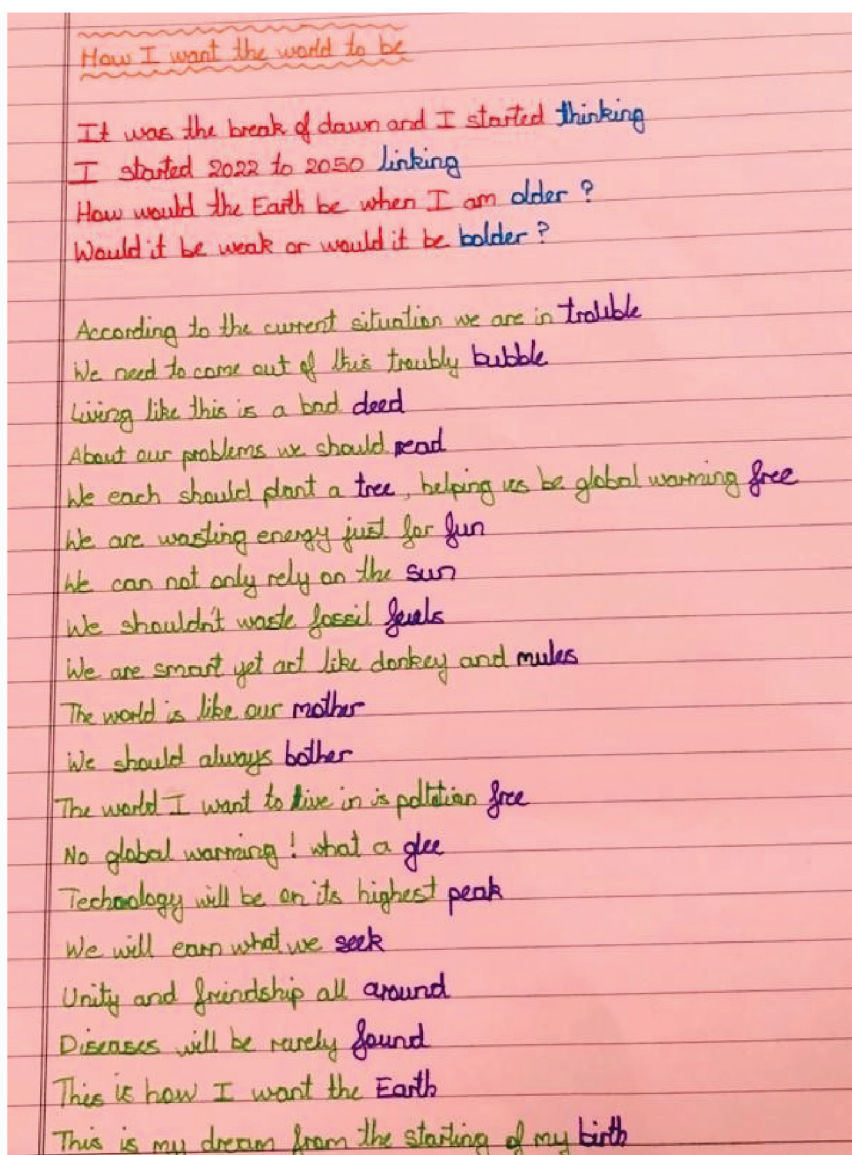 How I want the world to be
It was the break of dawn and I started thinking
I started 2022 to 2050 linking
How would the Earth be when I am older ?
Would it be weak or would it be bolder ?
According to the current situation we are in trouble
We need to come out of this troubly bubble
Living like this is a bad deed
About our problems we should read
We each should plant a tree, helping us be global warming free
We are wasting energy just for fun
We can not only rely on the sun
We shouldn't waste fossil fuels
We are smart yet act like donkey and mules
The world is like our mother
We should always bother
The world I want to live in is poltution free
No global warming ! what a glee
Technology will be on its highest peak
We will earn what we seek
Unity and friendship all around
Diseases will be rarely found
This is how I want the Earth
This is my dream from the starting of my birth